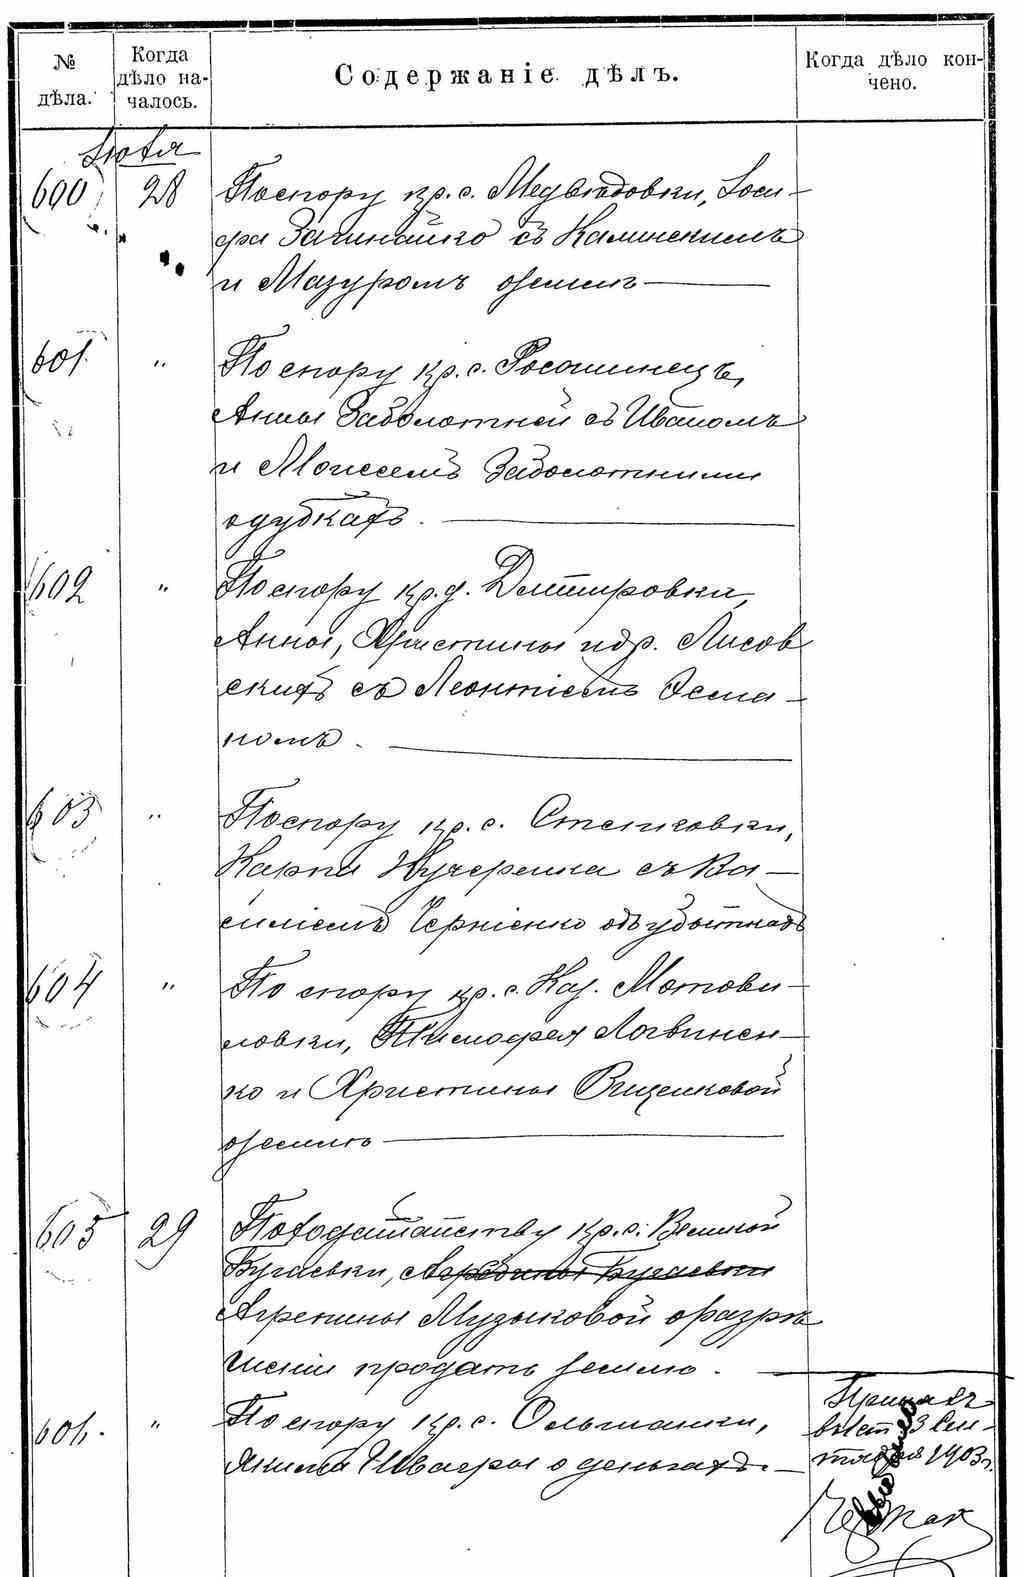 № дѣла.
Когда дѣло началось.
Содержаніе дѣлъ.
Когда дѣло кончено.
600 28 По спору кр. с. Медвѣдовки, Іоси-
фа Зачинайко съ Калинскимъ
и Мазуромъ о землѣ
601 " По спору кр. с. Росошинецъ,
Анны Заболотней съ Иваномъ
и Моисеемъ Заболотними
о дубкахъ.
602 " По спору кр. д. Дмитровки,
Анны, Христины и др. Лисов
скихъ съ Леонтіемъ Осма-
номъ.
603 " По спору кр. с. Степковки,
Карпа Кучеренка съ Ва-
силіемъ Черніенко объ убыткахъ
604 " По спору кр. с. Каз. Мотови-
ловки, Тимофея Логвинен-
ко и Христины Вищенковой
о землѣ
605 29 По ходатайству кр. с. Великой
Бугаевки,
Агрепины Музыковой о разрѣ
шеніи продать землю.
606. " По спору кр. с. Ольшанки,
Якима Швагры о деньгахъ.
3 Сен-
тября 1903 г.